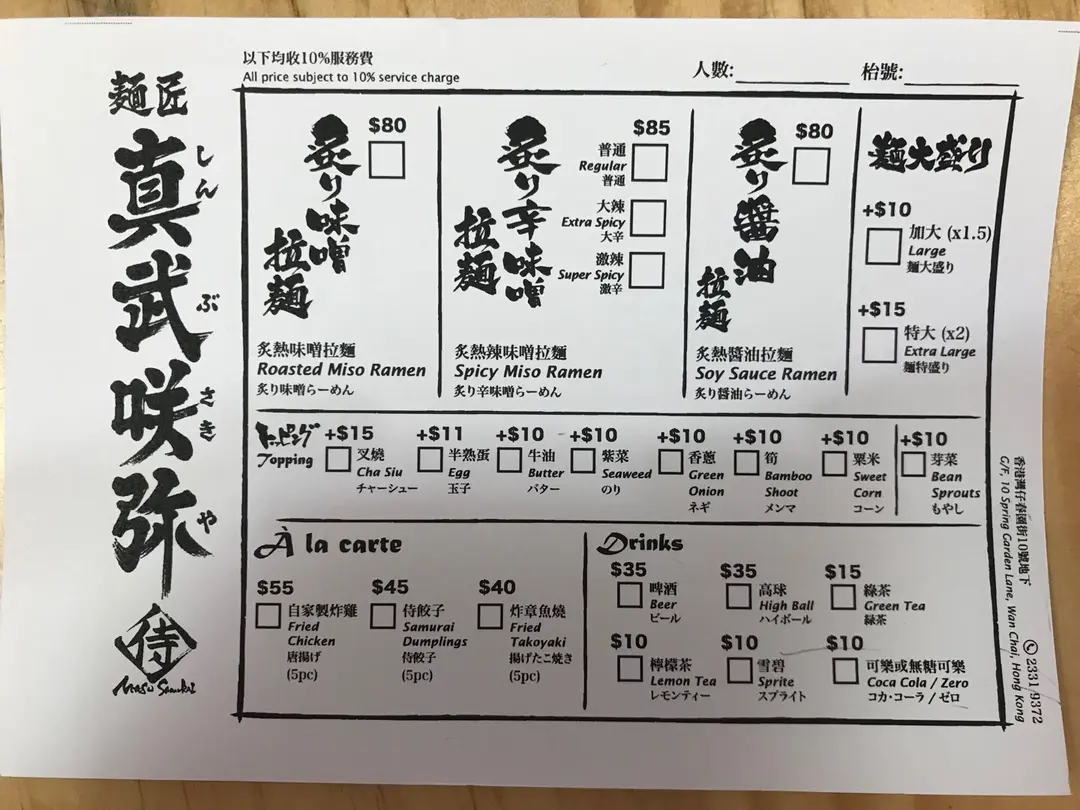 麵匠
真武咲弥
しんぶさきや
侍
以下均收10%服務費
All price subject to 10% service charge
人數:
枱號:
炙り味噌
拉麵
$80
炙熱味噌拉麵
Roasted Miso Ramen
炙り味噌らーめん
炙り辛味噌
拉麵
$85
普通
Regular
普通
大辣
Extra Spicy
大辛
激辣
Super Spicy
激辛
炙熱辣味噌拉麵
Spicy Miso Ramen
炙り辛味噌らーめん
炙り醬油
拉麵
$80
炙熱醬油拉麵
Soy Sauce Ramen
炙り醬油らーめん
麵大盛り
+$10
加大 (x1.5)
Large
麵大盛り
+$15
特大 (x2)
Extra Large
麵特盛り
トッピング
Topping
+$15
叉燒
Cha Siu
チャーシュー
+$11
半熟蛋
Egg
玉子
+$10
牛油
Butter
バター
+$10
紫菜
Seaweed
のり
+$10
香蔥
Green
Onion
ネギ
+$10
筍
Bamboo
Shoot
メンマ
+$10
粟米
Sweet
Corn
コーン
+$10
芽菜
Bean
Sprouts
もやし
À la carte
$55
自家製炸雞
Fried
Chicken
唐揚げ
(5pc)
$45
侍餃子
Samurai
Dumplings
侍餃子
(5pc)
$40
炸章魚燒
Fried
Takoyaki
揚げたこ焼き
(5pc)
Drinks
$35
啤酒
Beer
ビール
$35
高球
High Ball
ハイボール
$15
綠茶
Green Tea
緑茶
$10
檸檬茶
Lemon Tea
レモンティー
$10
雪碧
Sprite
スプライト
$10
可樂或無糖可樂
Coca Cola / Zero
コカ・コーラ / ゼロ
香港灣仔春園街10號地下
G/F, 10 Spring Garden Lane, Wan Chai, Hong Kong
2331 9372